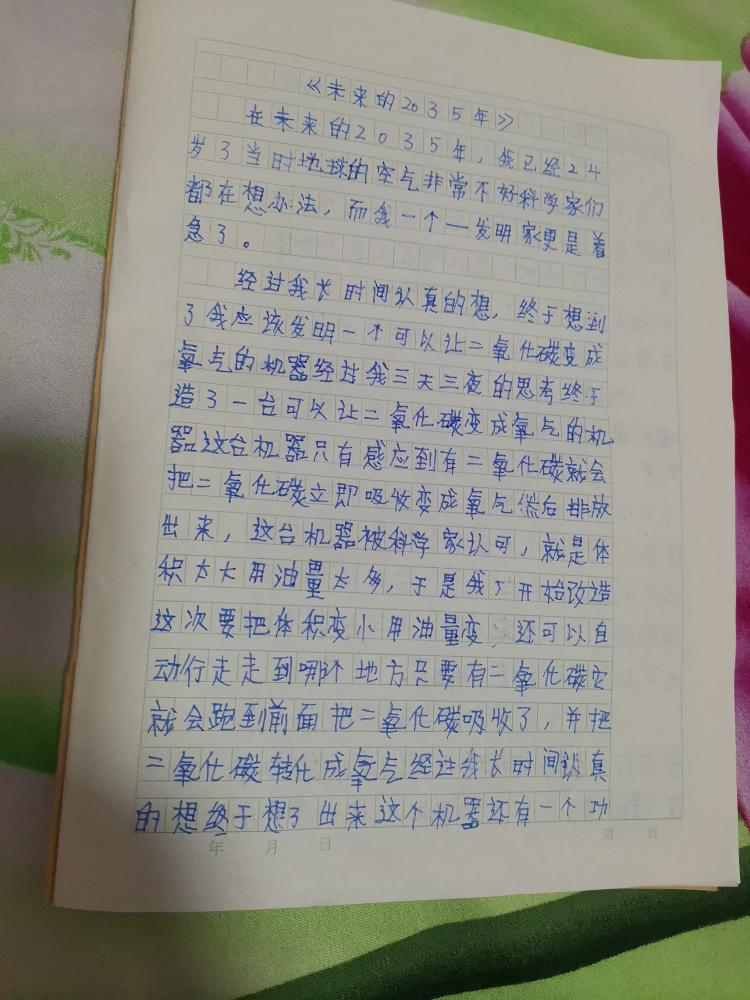 《未来的2035年》
在未来的2035年，我已经24
岁了当时地球的空气非常不好科学家们
都在想办法，而我一个一发明家更是着
急了。
经过我长时间认真的想，终于想到
了我应该发明一个可以让二氧化碳变成
氧气的机器经过我三天三夜的思考终于
造了一台可以让二氧化碳变成氧气的机
器这台机器只有感应到有二氧化碳就会
把二氧化碳立即吸收变成氧气然后排放
出来，这台机器被科学家认可，就是体
积太大用油量太多，于是我开始改造
这次要把体积变小用油量变，还可以自
动行走走到哪个地方只要有二氧化碳它
就会跑到前面把二氧化碳吸收了，并把
二氧化碳转化成氧气经过我长时间认真
的想终于想了出来这个机器还有一个功
年 月 日 第 页